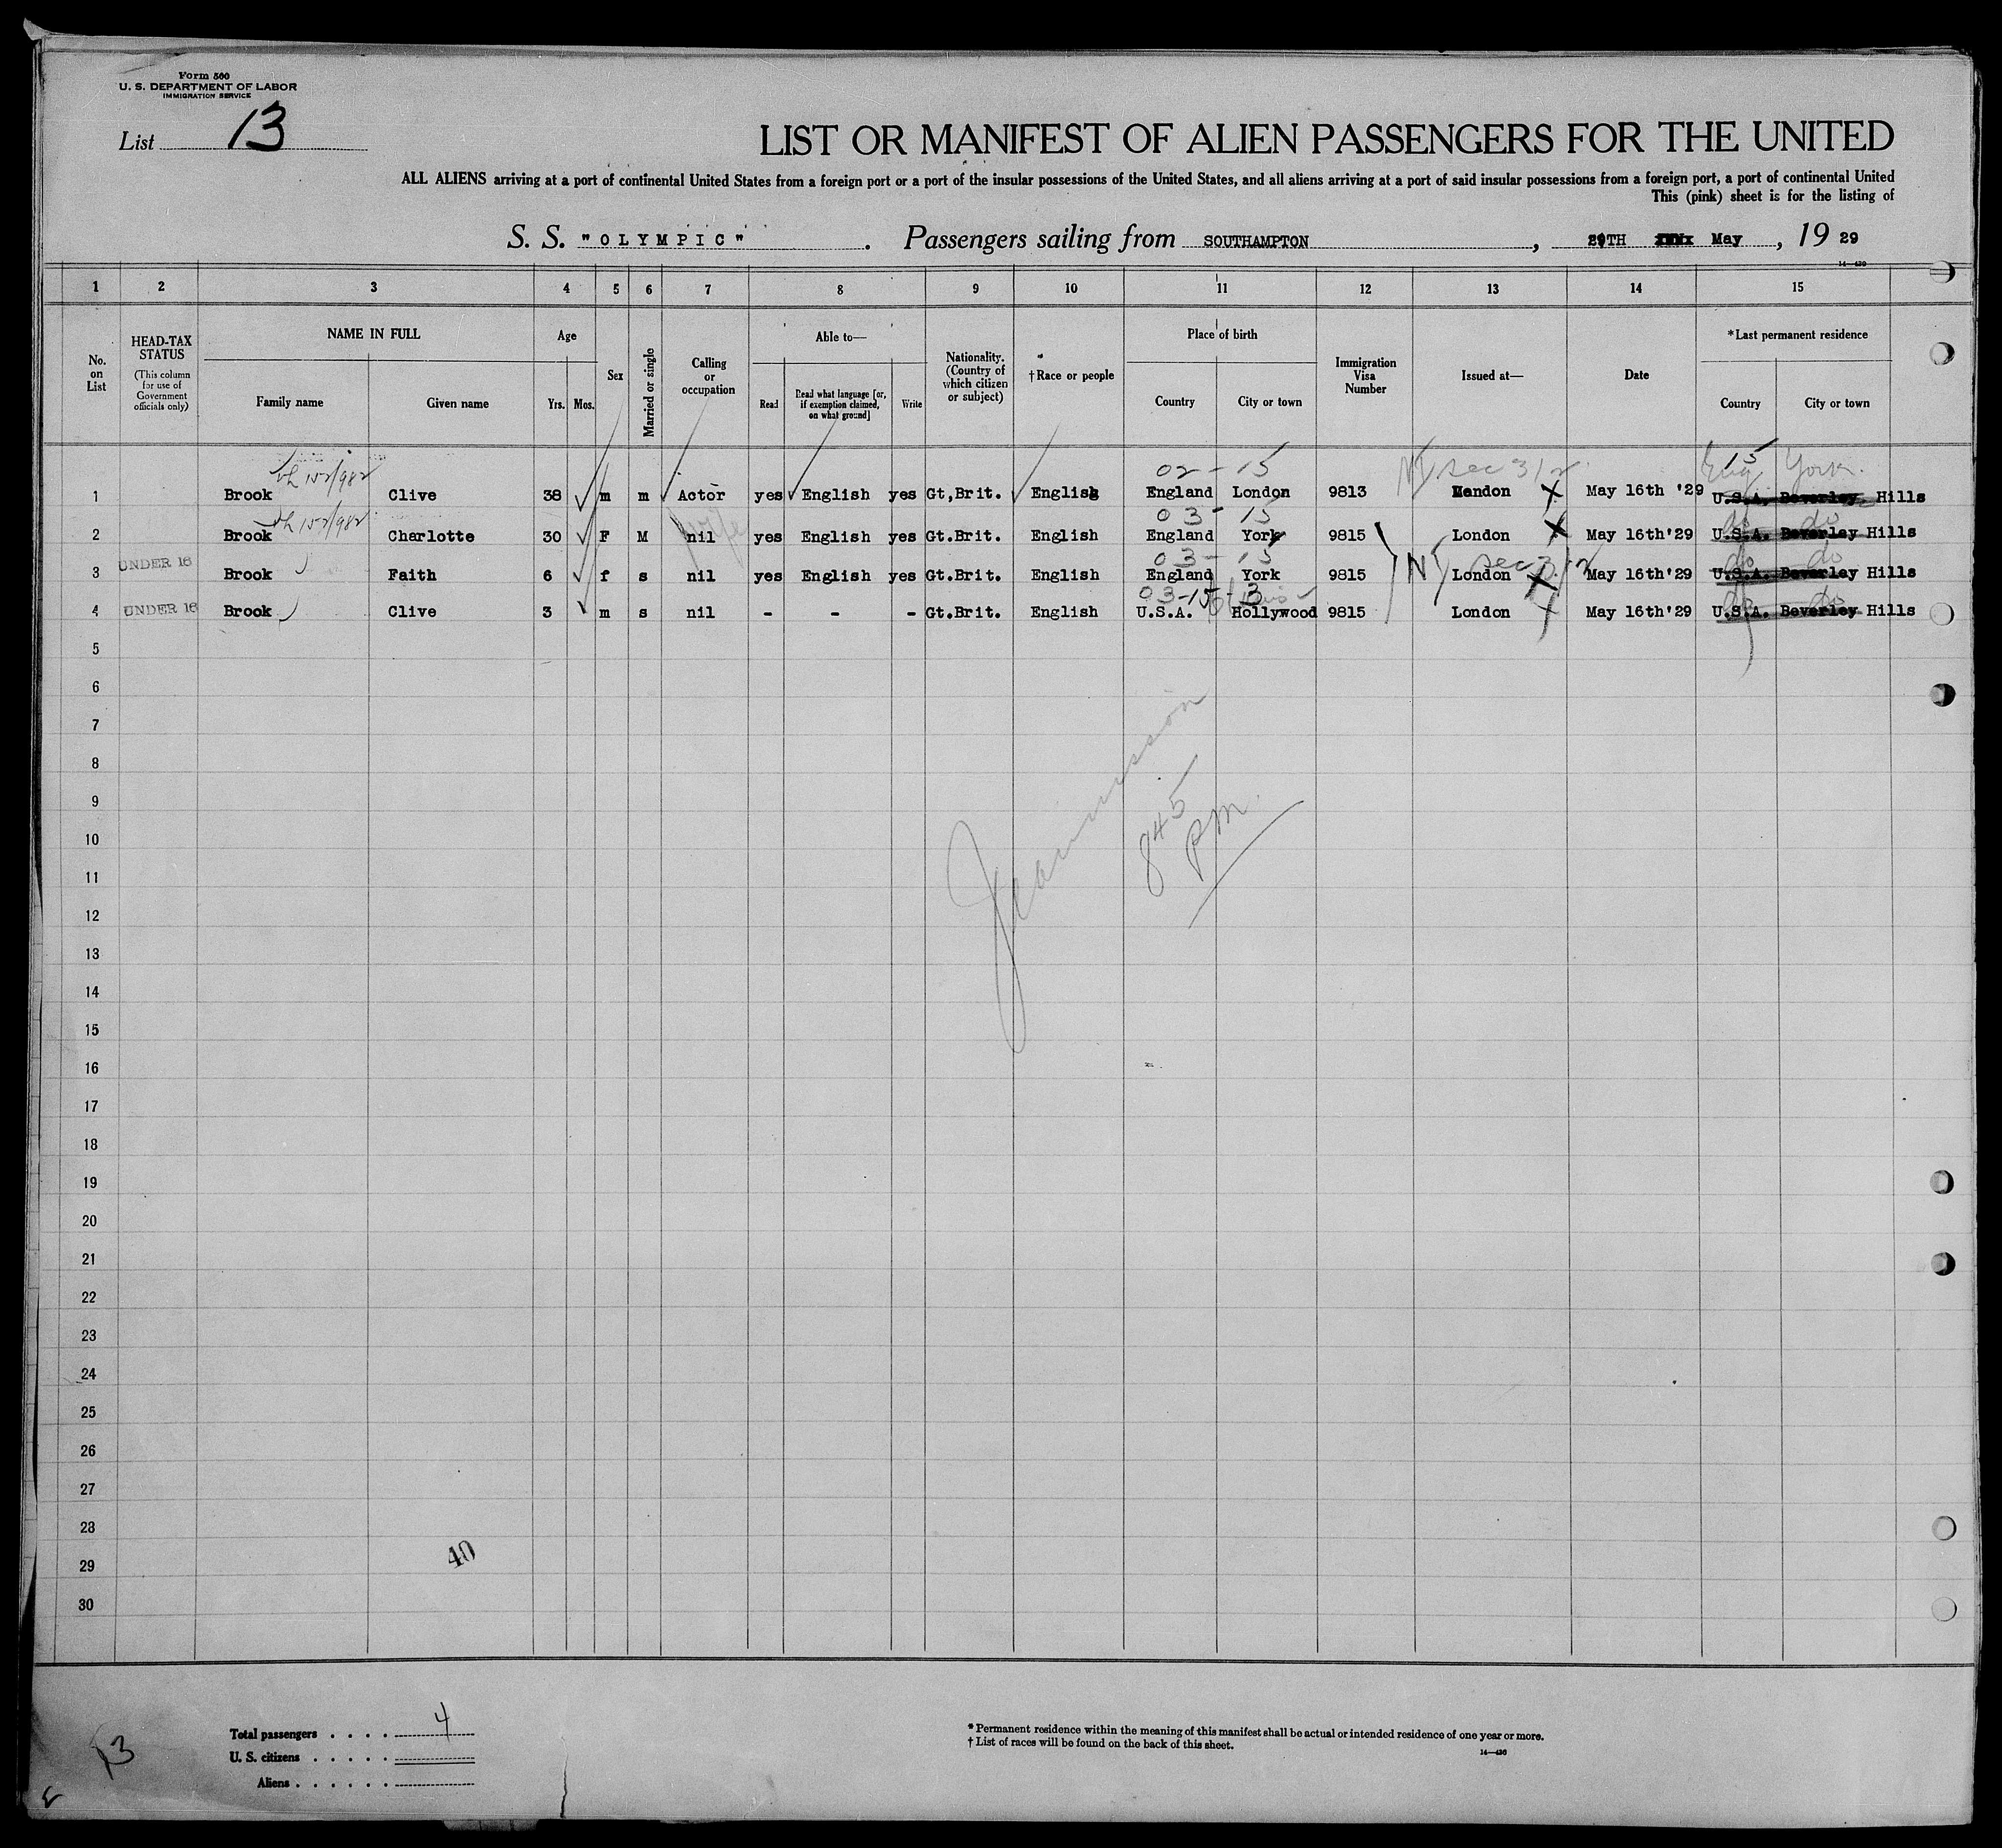 Form 500
U. S. DEPARTMENT OF LABOR
IMMIGRATION SERVICE
List 13
LIST OR MANIFEST OF ALIEN PASSENGERS FOR THE UNITED
ALL ALIENS arriving at a port of continental United States from a foreign port or a port of the insular possessions of the United States, and all aliens arriving at a port of said insular possessions from a foreign port, a port of continental United
This (pink) sheet is for the listing of
S. S. "OLYMPIC". Passengers sailing from SOUTHAMPTON, TH May, 19 29
1 2 3 4 5 6 7 8 9 10 11 12 13 14 15
No. on List
HEAD-TAX STATUS (This column for use of Government officials only)
NAME IN FULL Family name Given name
Age Yrs. Mos.
Sex
Married or single
Calling or occupation
Able to— Read Read what language [or, if exemption claimed, on what ground] Write
Nationality. (Country of which citizen or subject)
† Race or people
Place of birth Country City or town
Immigration Visa Number
Issued at—
Date
* Last permanent residence Country City or town
02 - 15 15
Eng York.
1 Brook Clive 38 m m Actor yes English yes Gt,Brit. English England London 9813 London May 16th '29 U.S.A. Beverley Hills
03 - 15 do do
2 Brook Charlotte 30 F M nil wife yes English yes Gt.Brit. English England York 9815 London May 16th'29 U.S.A. Beverley Hills
03 - 15 do do
3 UNDER 16 Brook Faith 6 f s nil yes English yes Gt.Brit. English England York 9815 London May 16th'29 U.S.A. Beverley Hills
03-15 do do
4 UNDER 16 Brook Clive 3 m s nil - - - Gt.Brit. English U.S.A. Hollywood 9815 London May 16th'29 U.S.A. Beverley Hills
5
6
7
8
9
10
11
12
13
14
15
16
17
18
19
20
21
22
23
24
25
26
27
28
29
30
845 PM.
40
Total passengers . . . . 4
U. S. citizens . . . . .
Aliens . . . . . .
13
* Permanent residence within the meaning of this manifest shall be actual or intended residence of one year or more.
† List of races will be found on the back of this sheet.